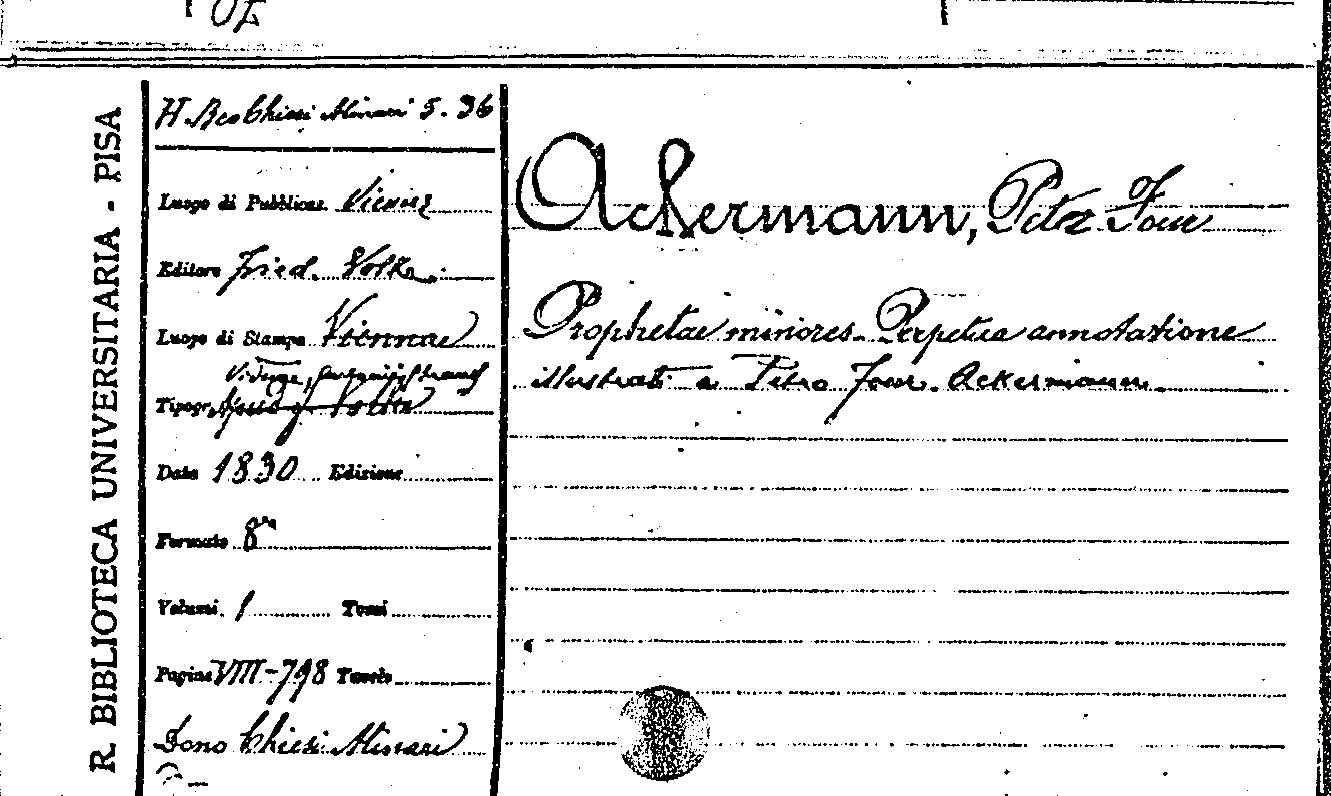 R. BIBLIOTECA UNIVERSITARIA - PISA
H. Chiesi Alinari 5. 36
Luogo di Pubblicaz.
Editore Fried. Volke
Luogo di Stampa Viennae
Tipogr.
Data 1830 Edizione
Formato 8º
Volumi 1 Tomi
Pagine VIII-798 Tavole
Dono Chiesi Alinari
Ackermann, Petr. Four
Prophetae minores. Perpetua annotatione
illustrati a Petro Four. Ackermann.